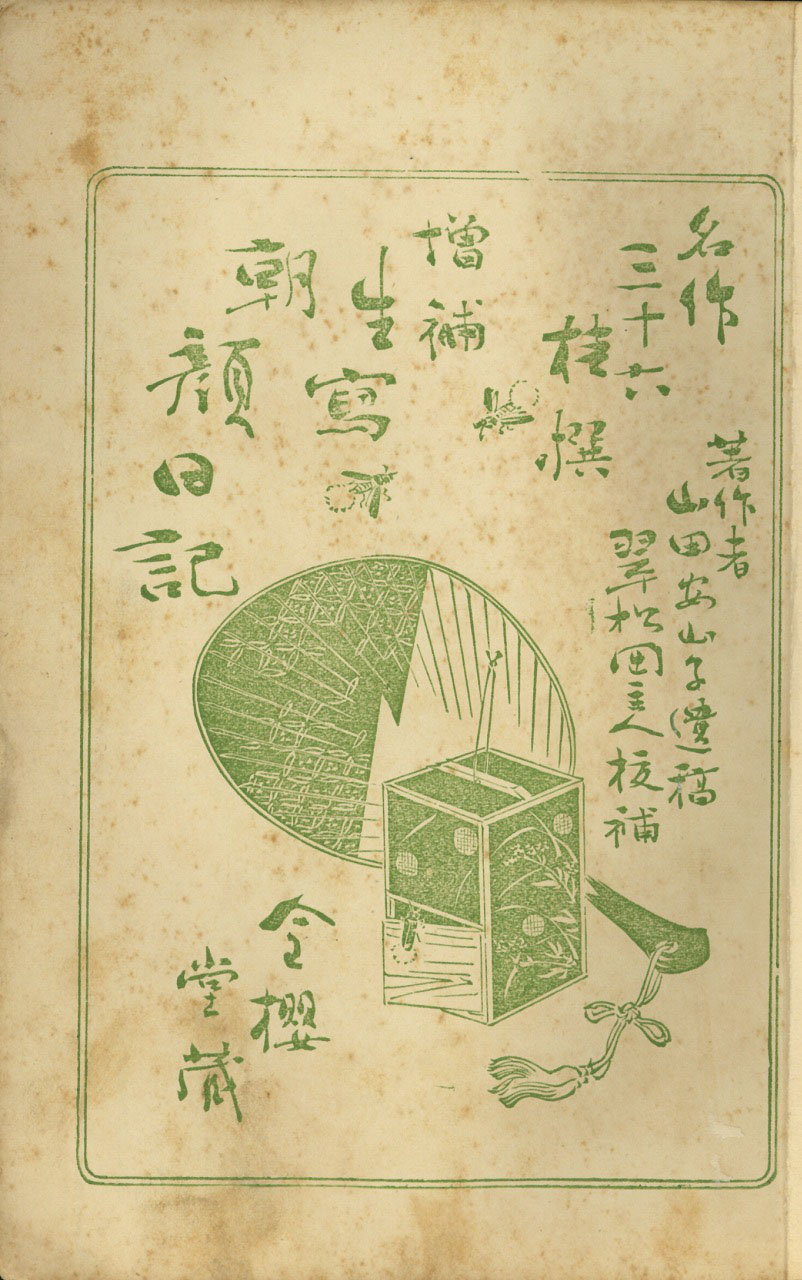 名作
三十六
桂撰
著作者
山田安山子遺稿
翠松園主人校補
増補
生寫
朝顔日記
金櫻
堂蔵